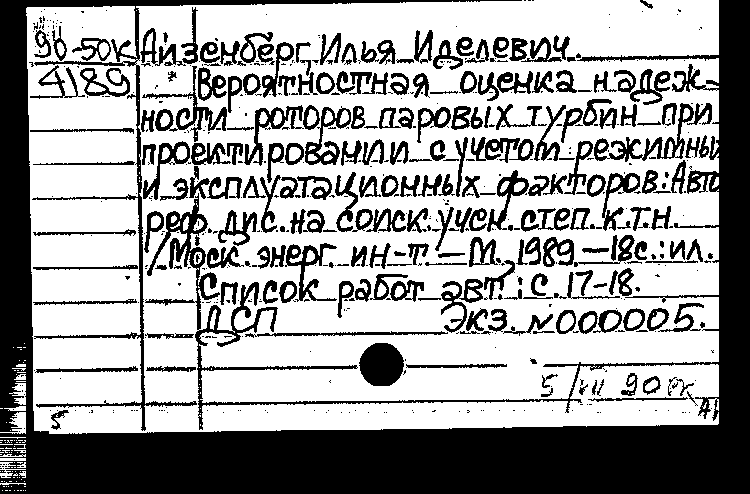 90-50К Айзенберг, Илья Иделевич.
4189 Вероятностная оценка надеж-
ности роторов паровых турбин при
проектировании с учетом режимны
и эксплуатационных факторов: Авто
реф. дис. на соиск. учен. степ. к.т.н.
/Моск. энерг. ин-т. — М., 1989. — 18с.: ил.
Список работ авт.: с. 17-18.
ДСП Экз. №000005.
5/VII 90
5